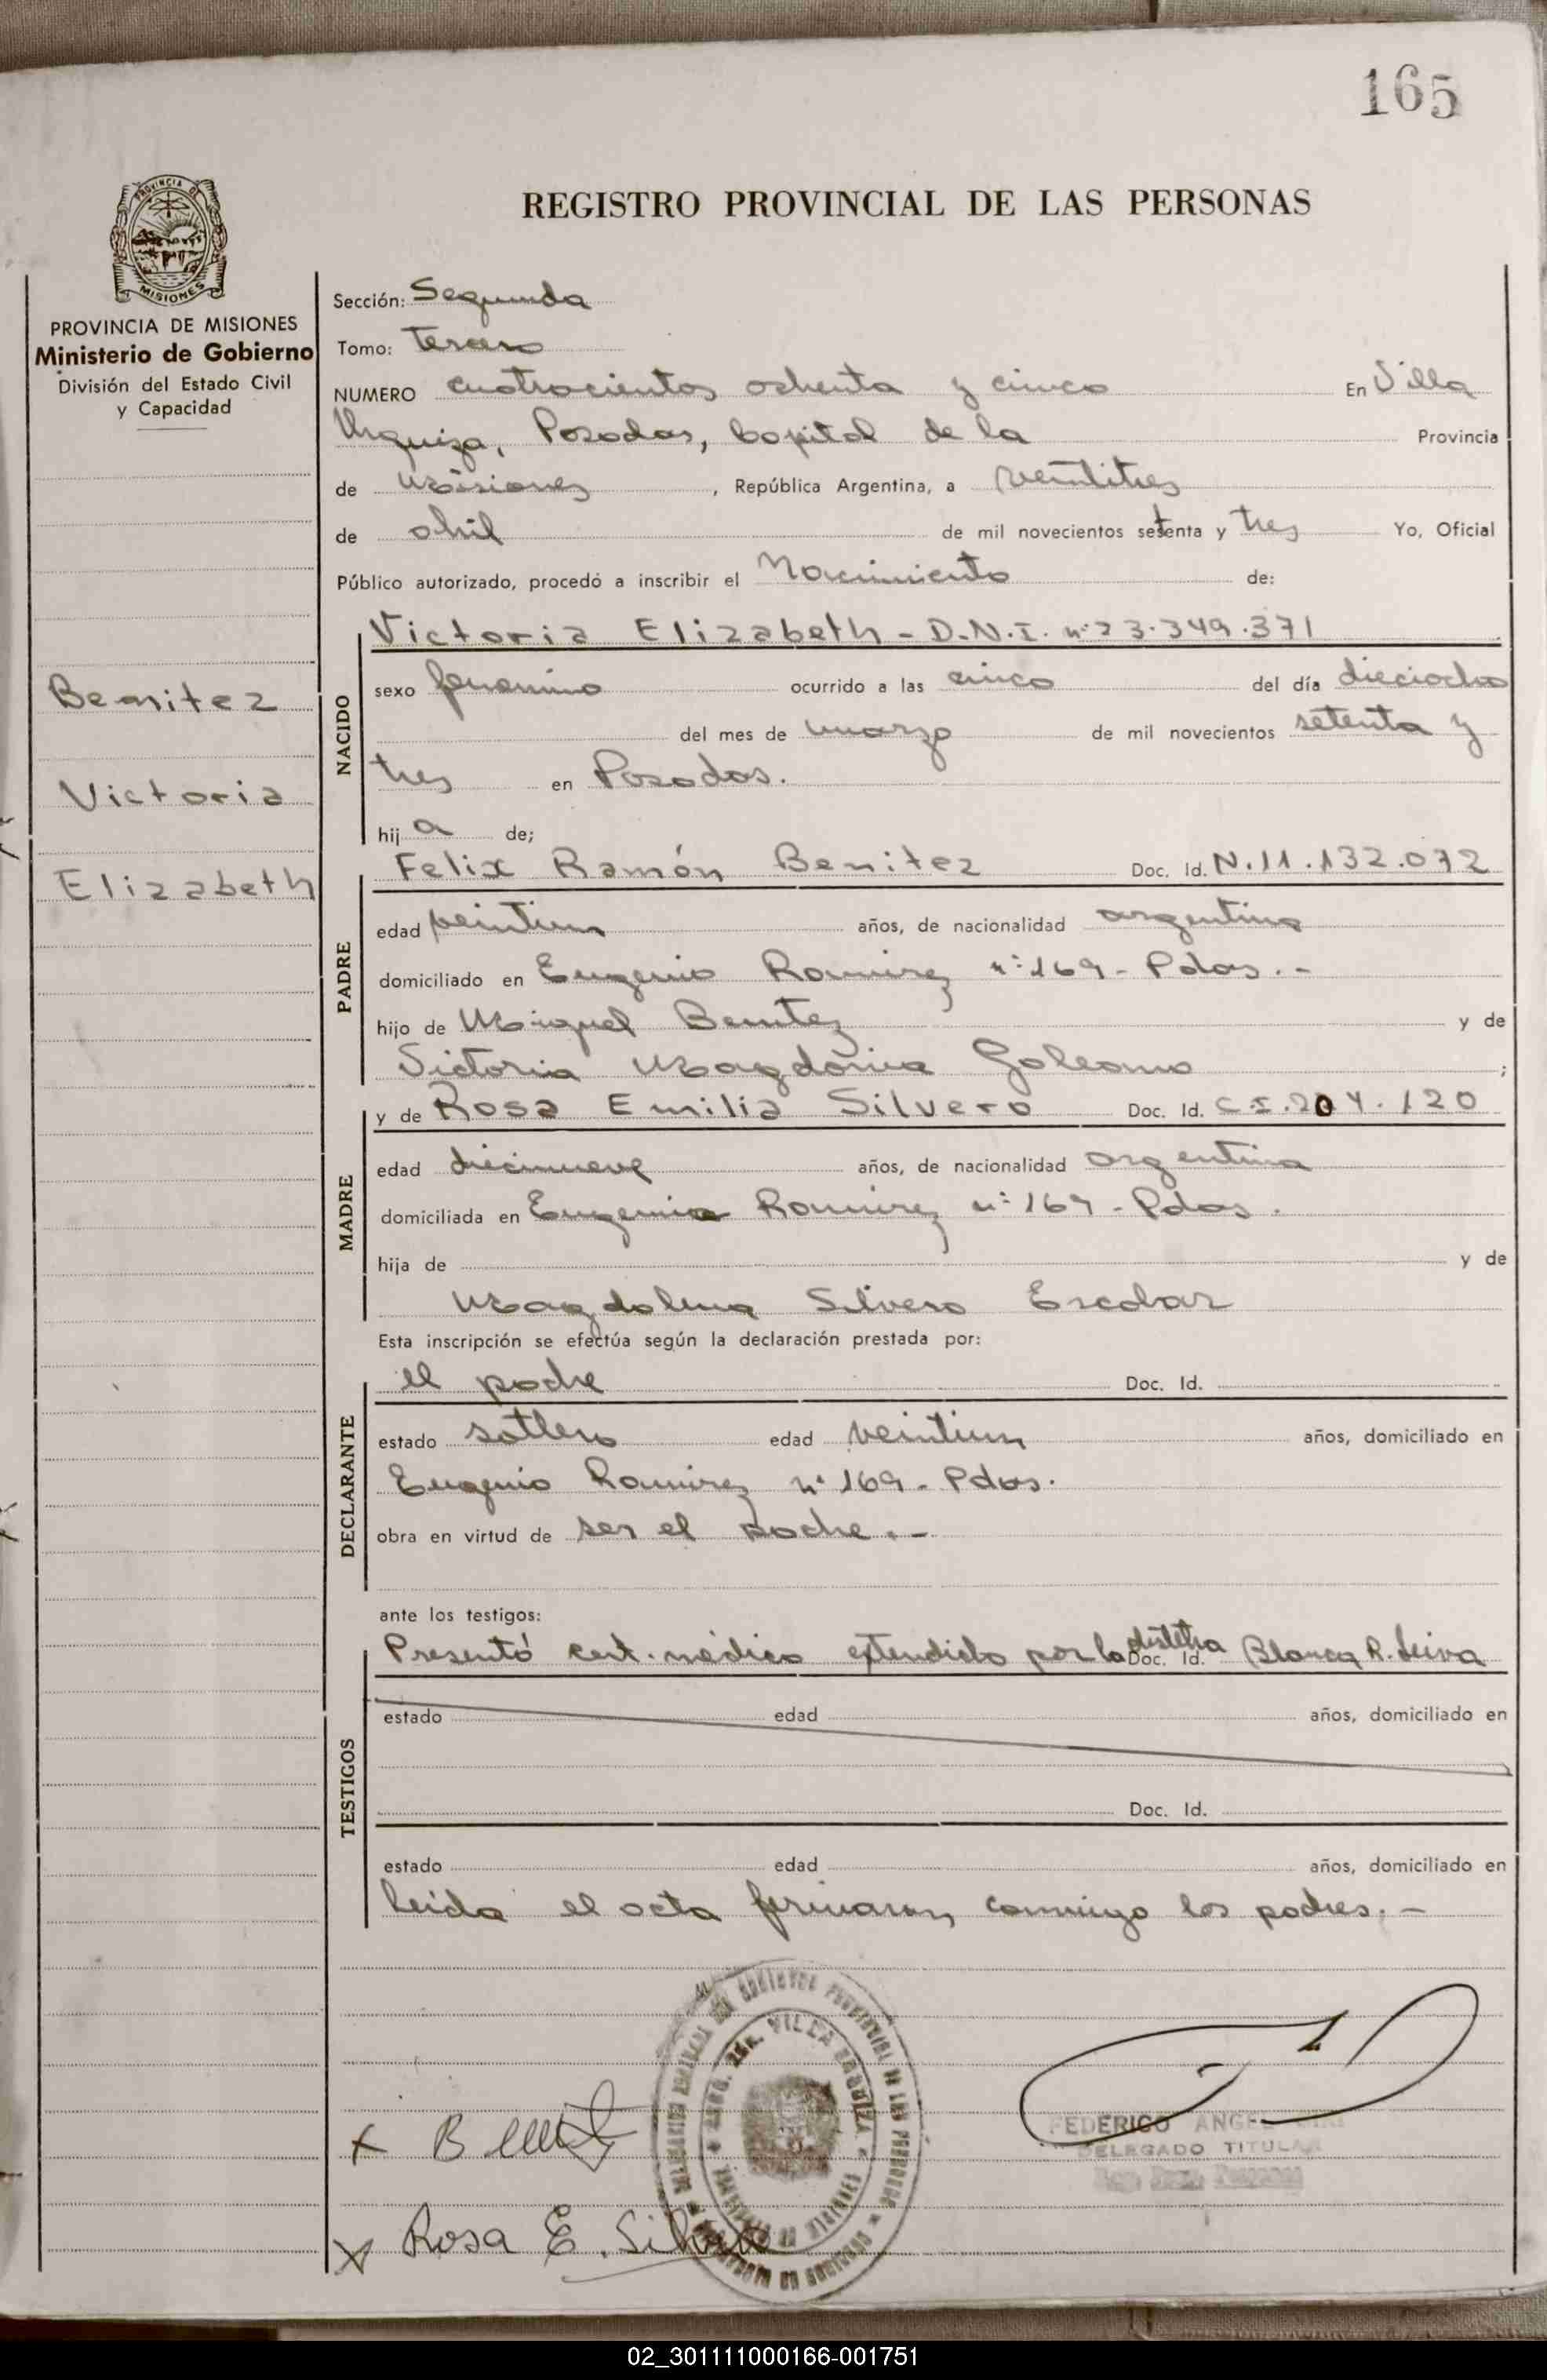 165
REGISTRO PROVINCIAL DE LAS PERSONAS
PROVINCIA DE
MISIONES
PROVINCIA DE MISIONES
Ministerio de Gobierno
División del Estado Civil
y Capacidad
Benitez
Victoria
Elizabeth
Sección: Segunda
Tomo: Tercero
NUMERO cuatrocientos ochenta y cinco En Villa
Urquiza, Posadas, Capital de la Provincia
de Misiones, República Argentina, a veintitres
de abril de mil novecientos setenta y tres Yo, Oficial
Público autorizado, procedó a inscribir el Nacimiento de:
NACIDO
Victoria Elizabeth - D.N.I. nº 23.349.371
sexo femenino ocurrido a las cinco del día dieciocho
del mes de marzo de mil novecientos setenta y
tres en Posadas.
hij a de;
PADRE
Felix Ramón Benitez Doc. Id. N. 11.132.072
edad veintiun años, de nacionalidad argentina
domiciliado en Eugenio Ramirez nº 169 - Pdas. -
hijo de Miguel Benitez y de
Victoria Galeano ;
MADRE
y de Rosa Emilia Silvero Doc. Id. C.I. 204.120
edad diecinueve años, de nacionalidad argentina
domiciliada en Eugenio Ramirez nº 169 - Pdas.
hija de y de
Magdalena Silvero Escobar
Esta inscripción se efectúa según la declaración prestada por:
DECLARANTE
el padre Doc. Id.
estado soltero edad veintiun años, domiciliado en
Eugenio Ramirez nº 169 - Pdas.
obra en virtud de ser el padre. -
ante los testigos:
TESTIGOS
Presentó cert. médico extendido por la obstetra Doc. Id. Blanca R. Leiva
estado edad años, domiciliado en
Doc. Id.
estado edad años, domiciliado en
Leida el acta firmaron conmigo los padres. -
VILLA URQUIZA
FEDERICO ANGEL
DELEGADO TITULAR
x Benitez
x Rosa E. Silvero
02_301111000166-001751